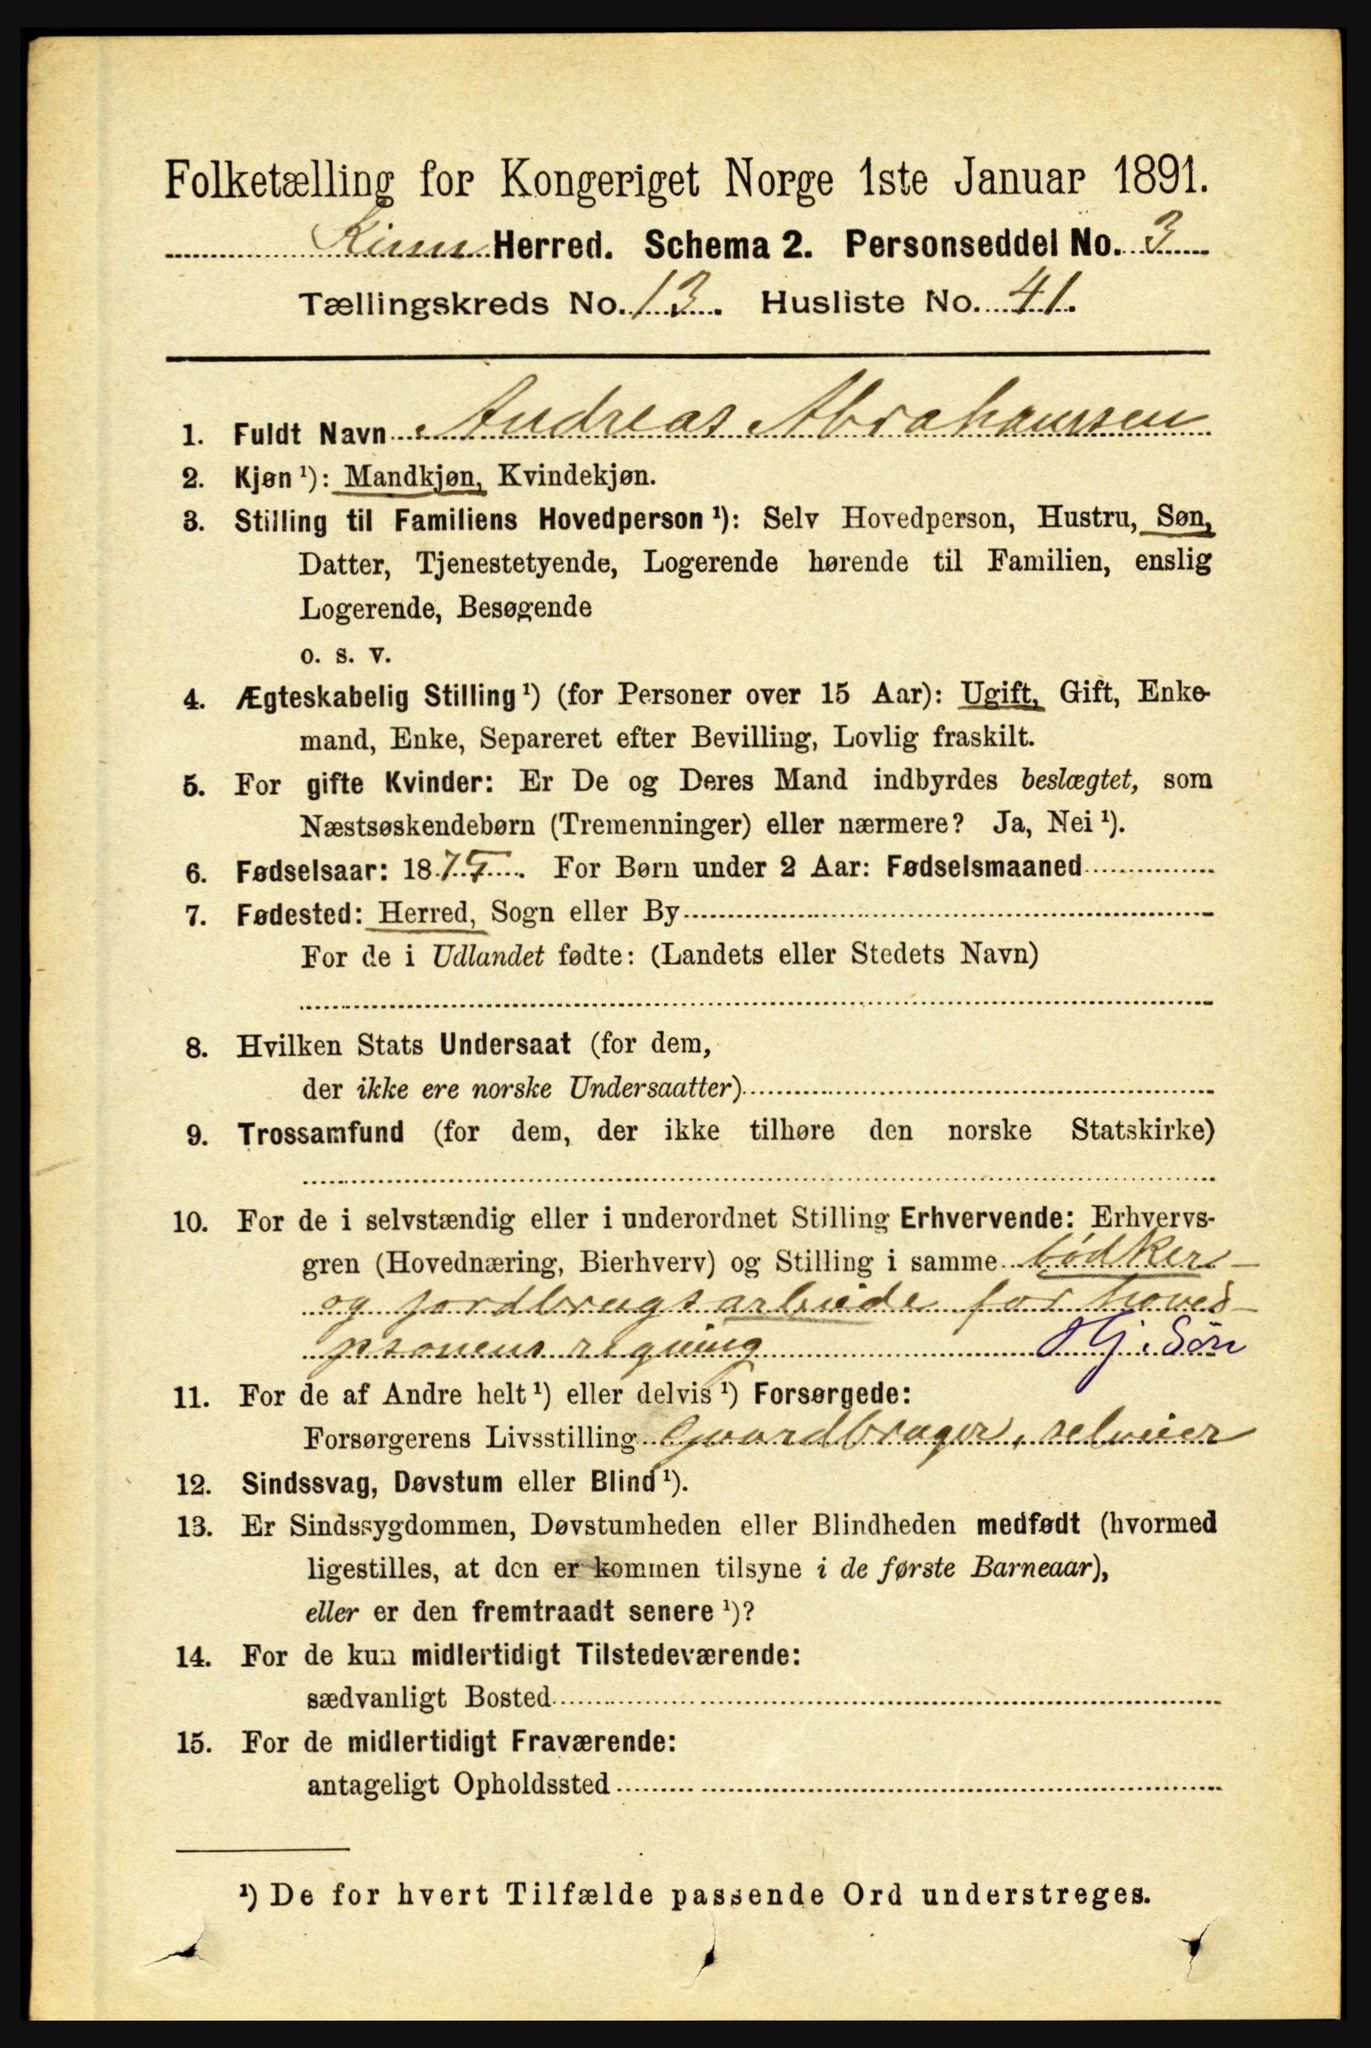 Folketælling for Kongeriget Norge 1ste Januar 1891.
Kinn Herred. Schema 2. Personseddel No. 3
Tællingskreds No. 13. Husliste No. 41.
1. Fuldt Navn Andreas Abrahamsen
2. Kjøn ¹): Mandkjøn, Kvindekjøn.
3. Stilling til Familiens Hovedperson ¹): Selv Hovedperson, Hustru, Søn,
Datter, Tjenestetyende, Logerende hørende til Familien, enslig
Logerende, Besøgende
o. s. v.
4. Ægteskabelig Stilling ¹) (for Personer over 15 Aar): Ugift, Gift, Enke-
mand, Enke, Separeret efter Bevilling, Lovlig fraskilt.
5. For gifte Kvinder: Er De og Deres Mand indbyrdes beslægtet, som
Næstsøskendebørn (Tremenninger) eller nærmere? Ja, Nei ¹).
6. Fødselsaar: 1875. For Børn under 2 Aar: Fødselsmaaned
7. Fødested: Herred, Sogn eller By
For de i Udlandet fødte: (Landets eller Stedets Navn)
8. Hvilken Stats Undersaat (for dem,
der ikke ere norske Undersaatter)
9. Trossamfund (for dem, der ikke tilhøre den norske Statskirke)
10. For de i selvstændig eller i underordnet Stilling Erhvervende: Erhvervs-
gren (Hovednæring, Bierhverv) og Stilling i samme bödker-
og jordbrugsarbeide for hoved-
psonens regning Hj. Sön
11. For de af Andre helt ¹) eller delvis ¹) Forsørgede:
Forsørgerens Livsstilling Gaardbruger, selveier
12. Sindssvag, Døvstum eller Blind ¹).
13. Er Sindssygdommen, Døvstumheden eller Blindheden medfødt (hvormed
ligestilles, at den er kommen tilsyne i de første Barneaar),
eller er den fremtraadt senere ¹)?
14. For de kun midlertidigt Tilstedeværende:
sædvanligt Bosted
15. For de midlertidigt Fraværende:
antageligt Opholdssted
¹) De for hvert Tilfælde passende Ord understreges.